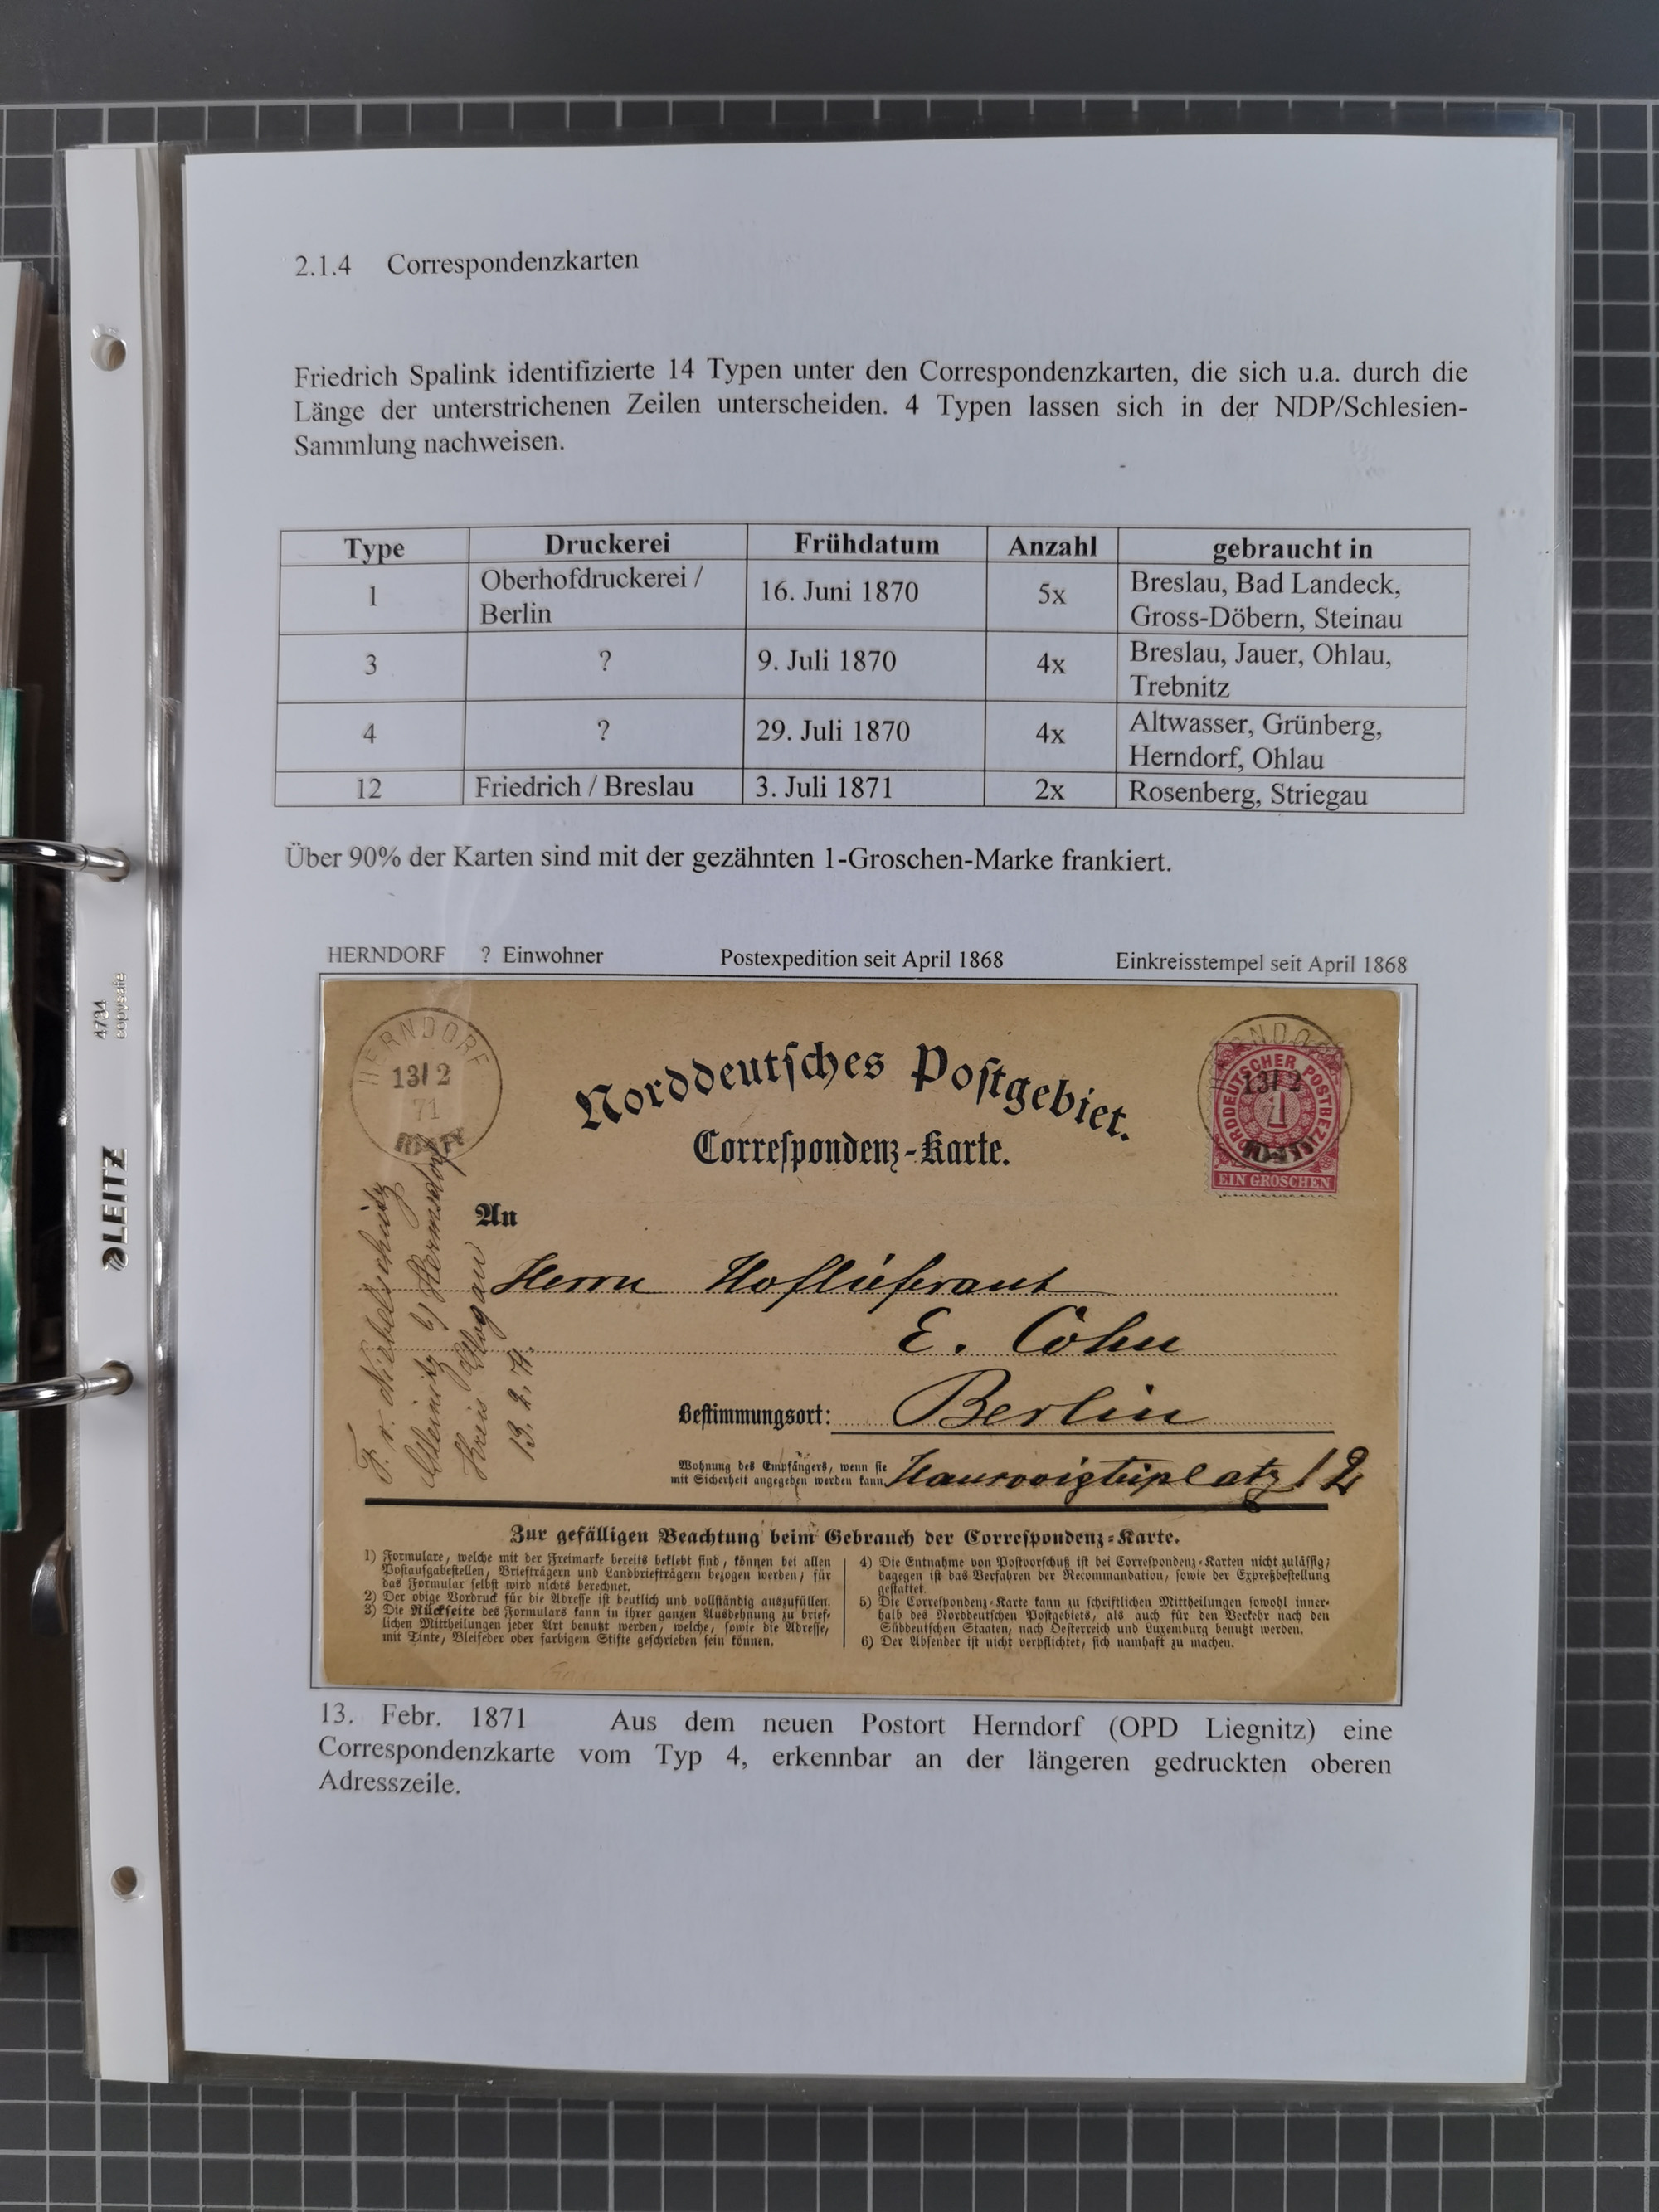 2.1.4 Correspondenzkarten
Friedrich Spalink identifizierte 14 Typen unter den Correspondenzkarten, die sich u.a. durch die
Länge der unterstrichenen Zeilen unterscheiden. 4 Typen lassen sich in der NDP/Schlesien-
Sammlung nachweisen.
Type Druckerei Frühdatum Anzahl gebraucht in
1 Oberhofdruckerei / Berlin 16. Juni 1870 5x Breslau, Bad Landeck, Gross-Döbern, Steinau
3 ? 9. Juli 1870 4x Breslau, Jauer, Ohlau, Trebnitz
4 ? 29. Juli 1870 4x Altwasser, Grünberg, Herndorf, Ohlau
12 Friedrich / Breslau 3. Juli 1871 2x Rosenberg, Striegau
Über 90% der Karten sind mit der gezähnten 1-Groschen-Marke frankiert.
HERNDORF ? Einwohner Postexpedition seit April 1868 Einkreisstempel seit April 1868
HERNDORF
13/2
71
Norddeutsches Postgebiet.
Correspondenz-Karte.
HERNDORF
13/2
NORDDEUTSCHER POSTBEZIRK
1
EIN GROSCHEN
An
Herrn Hoflieferant
E. Cohn
Bestimmungsort: Berlin
Wohnung des Empfängers, wenn sie
mit Sicherheit angegeben werden kann. 12
Kreis Glogau
13. 2. 71.
Zur gefälligen Beachtung beim Gebrauch der Correspondenz-Karte.
1) Formulare, welche mit der Freimarke bereits beklebt sind, können bei allen
Postaufgabestellen, Briefträgern und Landbriefträgern bezogen werden; für
das Formular selbst wird nichts berechnet.
2) Der obige Vordruck für die Adresse ist deutlich und vollständig auszufüllen.
3) Die Rückseite des Formulars kann in ihrer ganzen Ausdehnung zu brief-
lichen Mittheilungen jeder Art benutzt werden, welche, sowie die Adresse,
mit Tinte, Bleifeder oder farbigem Stifte geschrieben sein können.
4) Die Entnahme von Postvorschuß ist bei Correspondenz-Karten nicht zulässig;
dagegen ist das Verfahren der Recommandation, sowie der Expreßbestellung
gestattet.
5) Die Correspondenz-Karte kann zu schriftlichen Mittheilungen sowohl inner-
halb des Norddeutschen Postgebiets, als auch für den Verkehr nach den
Süddeutschen Staaten, nach Oesterreich und Luxemburg benutzt werden.
6) Der Absender ist nicht verpflichtet, sich namhaft zu machen.
13. Febr. 1871 Aus dem neuen Postort Herndorf (OPD Liegnitz) eine
Correspondenzkarte vom Typ 4, erkennbar an der längeren gedruckten oberen
Adresszeile.
4734
copysafe
LEITZ